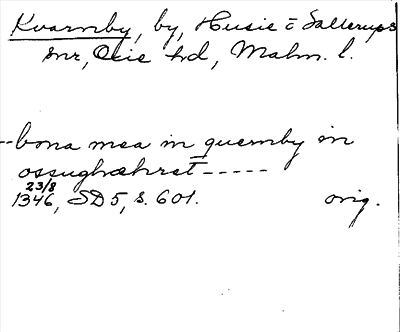 Kvarnby, by, Husie o Sallerups
snr, Oxie hd, Malm. l.
--bona mea in quernby in
ossughæhret -----
23/8
1346, SD 5, s. 601. orig.